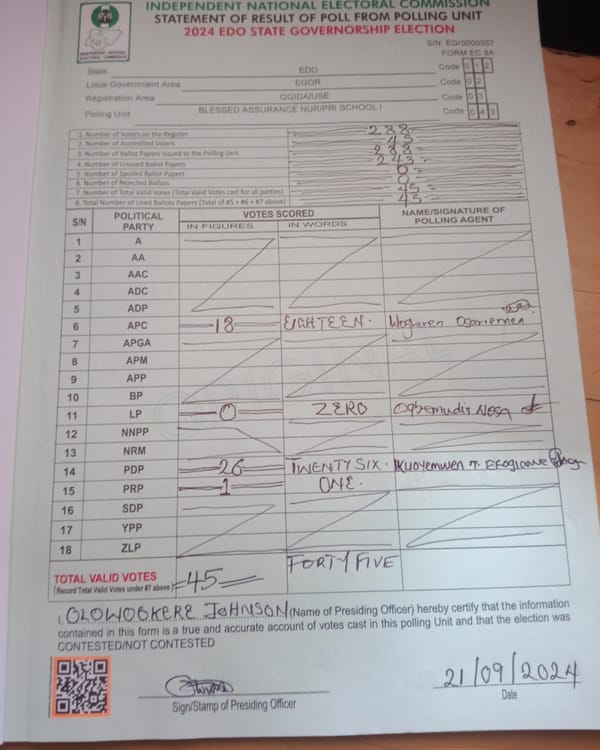 INDEPENDENT NATIONAL ELECTORAL COMMISSION
STATEMENT OF RESULT OF POLL FROM POLLING UNIT
2024 EDO STATE GOVERNORSHIP ELECTION
S/N EG/0000357
FORM EC 8A
INDEPENDENT NATIONAL ELECTORAL COMMISSION
State EDO Code 0 1 2
Local Government Area EGOR Code 0 2
Registration Area OGIDA/USE Code 0 3
Polling Unit BLESSED ASSURANCE NUR/PRI SCHOOL I Code 0 4 3
1. Number of Voters on the Register 288
2. Number of Accredited Voters 45
3. Number of Ballot Papers issued to the Polling Unit 288
4. Number of Unused Ballot Papers 243
5. Number of Spoiled Ballot Papers 0
6. Number of Rejected Ballots 0
7. Number of Total Valid Votes (Total Valid Votes cast for all parties) 45
8. Total Number of Used Ballots Papers (Total of #5 + #6 + #7 above) 45
S/N POLITICAL PARTY VOTES SCORED NAME/SIGNATURE OF POLLING AGENT
IN FIGURES IN WORDS
1 A
2 AA
3 AAC
4 ADC
5 ADP
6 APC 18 EIGHTEEN. Woghiren Osariemen
7 APGA
8 APM
9 APP
10 BP
11 LP 0 ZERO Ogbemudia Nosa
12 NNPP
13 NRM
14 PDP 26 TWENTY SIX.
15 PRP 1 ONE.
16 SDP
17 YPP
18 ZLP
TOTAL VALID VOTES =45= FORTY FIVE
(Record Total Valid Votes under #7 above)
I, OLOWOOKERE JOHNSON (Name of Presiding Officer) hereby certify that the information
contained in this form is a true and accurate account of votes cast in this polling Unit and that the election was
CONTESTED/NOT CONTESTED
21/09/2024
Sign/Stamp of Presiding Officer Date